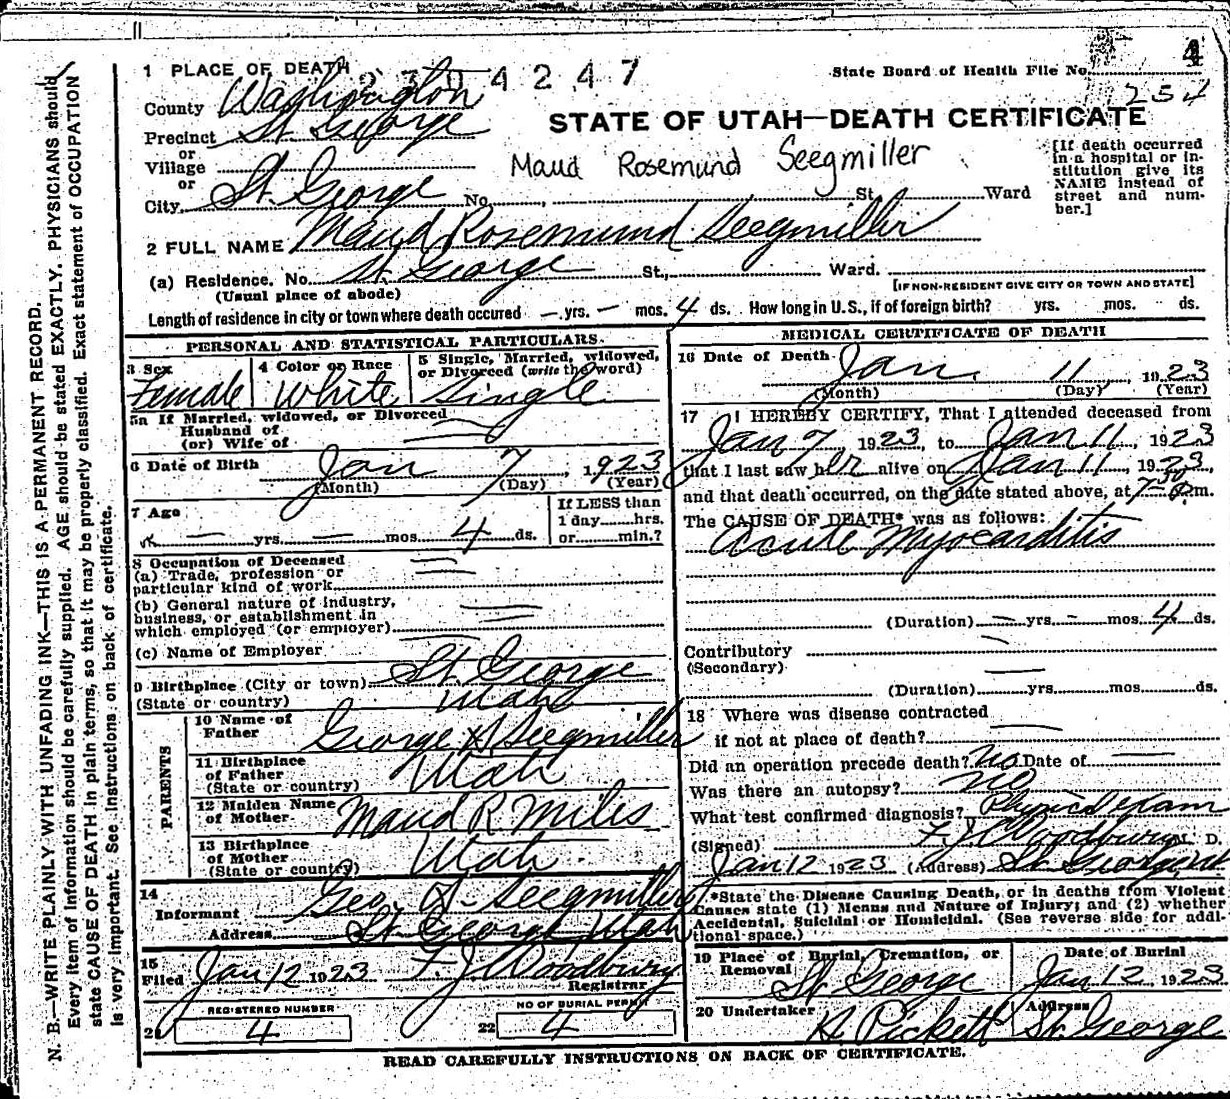 4
1 PLACE OF DEATH 2304247
State Board of Health File No.
254
County Washington
STATE OF UTAH—DEATH CERTIFICATE
Precinct St. George
or
Village
Maud Rosemund Seegmiller
or
City St. George No. St. Ward
[If death occurred
in a hospital or in-
stitution give its
NAME instead of
street and num-
ber.]
2 FULL NAME Maud Rosemund Seegmiller
(a) Residence. No. St. George St., Ward.
(Usual place of abode)
[IF NON-RESIDENT GIVE CITY OR TOWN AND STATE]
Length of residence in city or town where death occured — yrs. — mos. 4 ds. How long in U.S., if of foreign birth? yrs. mos. ds.
PERSONAL AND STATISTICAL PARTICULARS.
3 Sex
Female
4 Color or Race
White
5 Single, Married, widowed,
or Divorced (write the word)
Single
5a If Married, widowed, or Divorced
Husband of
(or) Wife of
6 Date of Birth
Jan 7, 1923
(Month) (Day) (Year)
7 Age
— yrs. — mos. 4 ds.
If LESS than
1 day......hrs.
or......min.?
8 Occupation of Deceased
(a) Trade, profession or
particular kind of work
(b) General nature of industry,
business, or establishment in
which employed (or employer)
(c) Name of Employer
9 Birthplace (City or town) St. George
(State or country) Utah
PARENTS
10 Name of
Father George H Seegmiller
11 Birthplace
of Father
(State or country) Utah
12 Maiden Name
of Mother Maud R Miles
13 Birthplace
of Mother
(State or country) Utah
14
Informant Geo. H. Seegmiller
Address St George Utah
15
Filed Jan 12 1923 F. J. Woodbury
Registrar
REGISTERED NUMBER
21 4
NO OF BURIAL PERMIT
22 4
MEDICAL CERTIFICATE OF DEATH
16 Date of Death Jan. 11 1923
(Month) (Day) (Year)
17 I HEREBY CERTIFY, That I attended deceased from
Jan 7, 1923, to Jan 11, 1923
that I last saw her alive on Jan 11, 1923,
and that death occurred, on the date stated above, at 7 m.
The CAUSE OF DEATH* was as follows:
Acute Myocarditis
(Duration) — yrs. — mos. 4 ds.
Contributory —
(Secondary)
(Duration) yrs. mos. ds.
18 Where was disease contracted
if not at place of death?
Did an operation precede death? No Date of —
Was there an autopsy? No
What test confirmed diagnosis? Physical exam
(Signed) F. J. Woodbury M. D.
Jan 12 1923 (Address) St. George
*State the Disease Causing Death, or in deaths from Violent
Causes state (1) Menus and Nature of Injury; and (2) whether
Accidental, Suicidal or Homicidal. (See reverse side for addi-
tional space.)
19 Place of Burial, Cremation, or
Removal
St. George
Date of Burial
Jan 12 1923
20 Undertaker
H Pickett
Address
St. George
READ CAREFULLY INSTRUCTIONS ON BACK OF CERTIFICATE.
N. B.—WRITE PLAINLY WITH UNFADING INK—THIS IS A PERMANENT RECORD.
Every item of information should be carefully supplied. AGE should be stated EXACTLY. PHYSICIANS should
state CAUSE OF DEATH in plain terms, so that it may be properly classified. Exact statement of OCCUPATION
is very important. See instructions on back of certificate.